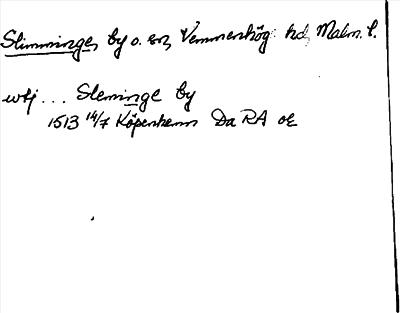 Slimminge, by o. sn, Vemmenhög: hd, Malm. l.
utj ... Sleminge by
1513 14/7 Köpenhamn Da RA oE